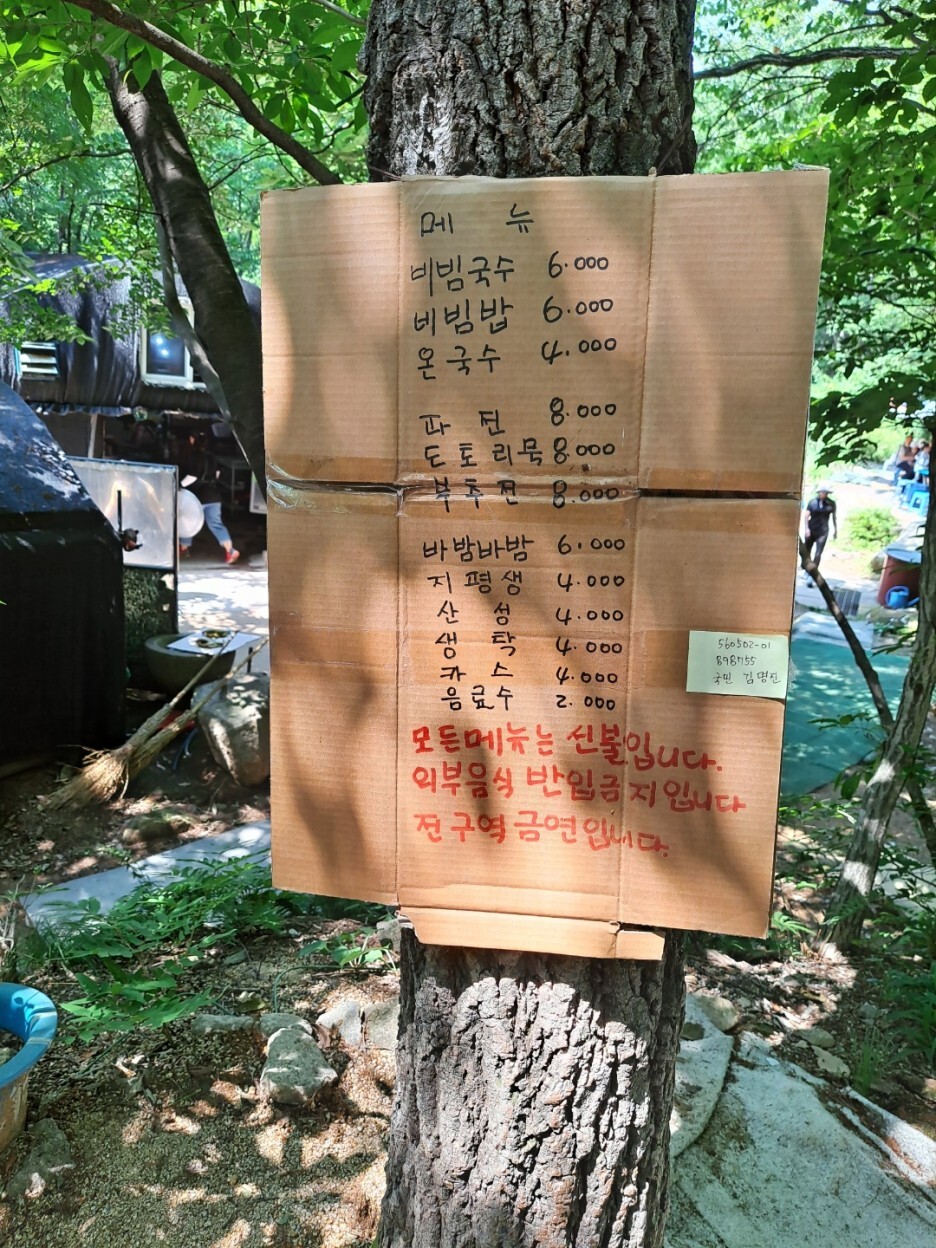 메 뉴
비빔국수 6.000
비빔밥 6.000
온국수 4.000
파 전 8.000
도토리묵 8.000
부추전 8.000
바밤바밤 6.000
지평생 4.000
산 성 4.000
생 탁 4.000
카 스 4.000
음료수 2.000
모든메뉴는 선불입니다.
외부음식 반입금지입니다
전구역 금연입니다.
560502-01
898755
국민 김명진